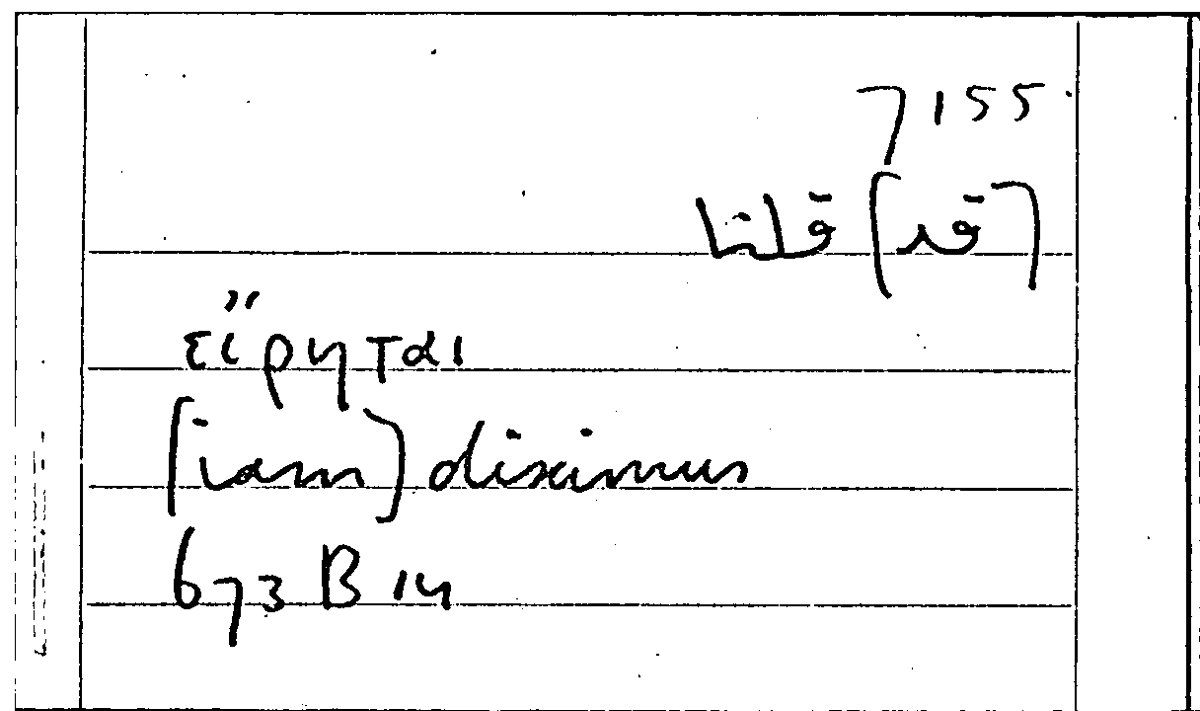 7155
(قد) قلنا
εἴρηται
(iam) diximus
673 B 14